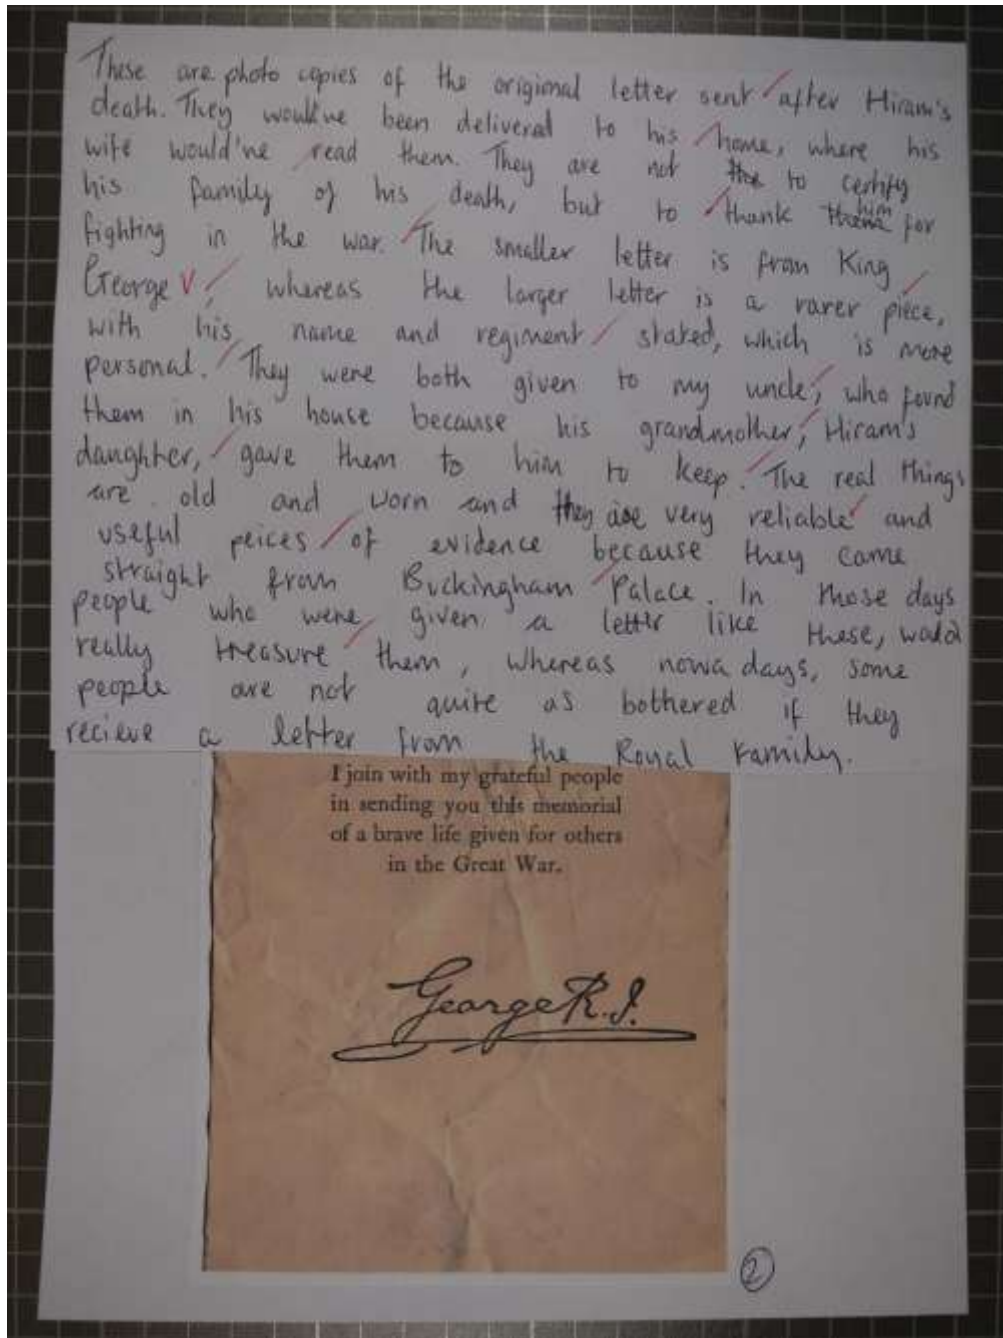 These are photo copies of the origional letter sent after Hiram's
death. They would've been delivered to his home, where his
wife would've read them. They are not the to certify
his family of his death, but to thank them him for
fighting in the war. The smaller letter is from King
George V, whereas the larger letter is a rarer piece,
with his name and regiment stated, which is more
personal. They were both given to my uncle, who found
them in his house because his grandmother, Hiram's
daughter, gave them to him to keep. The real things
are old and worn and they are very reliable and
useful peices of evidence because they came
straight from Buckingham Palace. In those days
people who were given a letter like these, would
really treasure them, whereas nowadays, some
people are not quite as bothered if they
recieve a letter from the Royal Family.
I join with my grateful people
in sending you this memorial
of a brave life given for others
in the Great War.
George R.I.
2